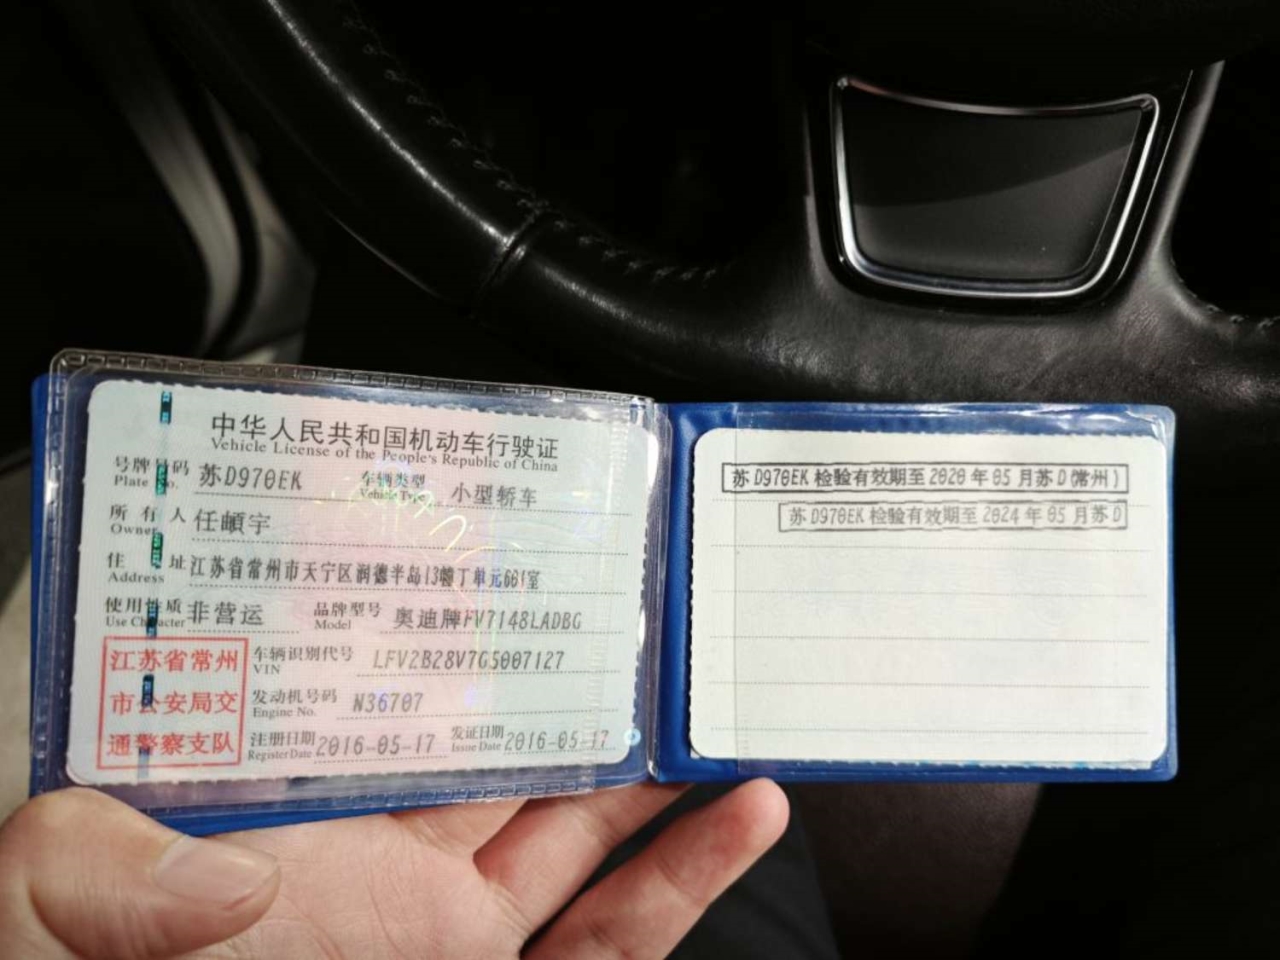 中华人民共和国机动车行驶证
Vehicle License of the People's Republic of China
号牌号码 苏D970EK 车辆类型 小型轿车
Plate No. Vehicle Type
所有人 任頔宇
Owner
住址 江苏省常州市天宁区润德半岛13幢丁单元601室
Address
使用性质 非营运 品牌型号 奥迪牌FV7148LADBG
Use Character Model
江苏省常州 车辆识别代号 LFV2B28V7G5007127
VIN
市公安局交 发动机号码 N36707
Engine No.
通警察支队 注册日期 2016-05-17 发证日期 2016-05-17
Register Date Issue Date
苏D970EK 检验有效期至2020年05月苏D(常州)
苏D970EK 检验有效期至2024年05月苏D